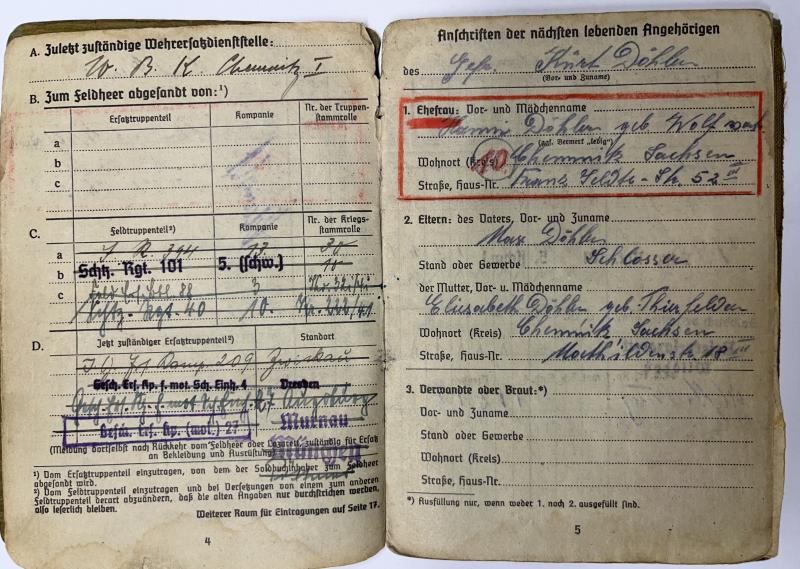 A. Zuletzt zuständige Wehrersatzdienststelle:
W. B. K. Chemnitz I
B. Zum Feldheer abgesandt von:¹)
Ersatztruppenteil Kompanie Nr. der Truppen-
stammrolle
a
b
c
C. Feldtruppenteil²) Kompanie Nr. der Kriegs-
stammrolle
a
b Schtz. Rgt. 101 5. (schw.)
c 3
Schtz. Rgt. 40 10. Nr. 222/41
D. Jetzt zuständiger Ersatztruppenteil²) Standort
209 Zwickau
Gesch. Ers. Kp. f. mot. Sch. Einh. 4 Dresden
Augsburg
Gesch. Ers. Kp. (mot.) 27 Murnau
München
(Meldung dortselbst nach Rückkehr vom Feldheer oder Lazarett, zuständig für Ersatz
an Bekleidung und Ausrüstung)
¹) Vom Ersatztruppenteil einzutragen, von dem der Soldbuchinhaber zum Feldheer
abgesandt wird.
²) Vom Feldtruppenteil einzutragen und bei Versetzungen von einem zum anderen
Feldtruppenteil derart abzuändern, daß die alten Angaben nur durchstrichen werden,
also leserlich bleiben.
Weiterer Raum für Eintragungen auf Seite 17.
4
Anschriften der nächsten lebenden Angehörigen
des Gefr. Kurt Döhler
(Vor- und Zuname)
1. Ehefrau: Vor- und Mädchenname
Döhler geb
(ggf. Vermerk „ledig")
Wohnort (Kreis) Chemnitz Sachsen
Straße, Haus-Nr. 52 III
2. Eltern: des Vaters, Vor- und Zuname
Max Döhler
Stand oder Gewerbe Schlosser
der Mutter, Vor- u. Mädchenname
Elisabeth Döhler geb. Thierfelder
Wohnort (Kreis) Chemnitz Sachsen
Straße, Haus-Nr. Mathildenstr 18 III
3. Verwandte oder Braut:*)
Vor- und Zuname
Stand oder Gewerbe
Wohnort (Kreis)
Straße, Haus-Nr.
*) Ausfüllung nur, wenn weder 1. noch 2. ausgefüllt sind.
5